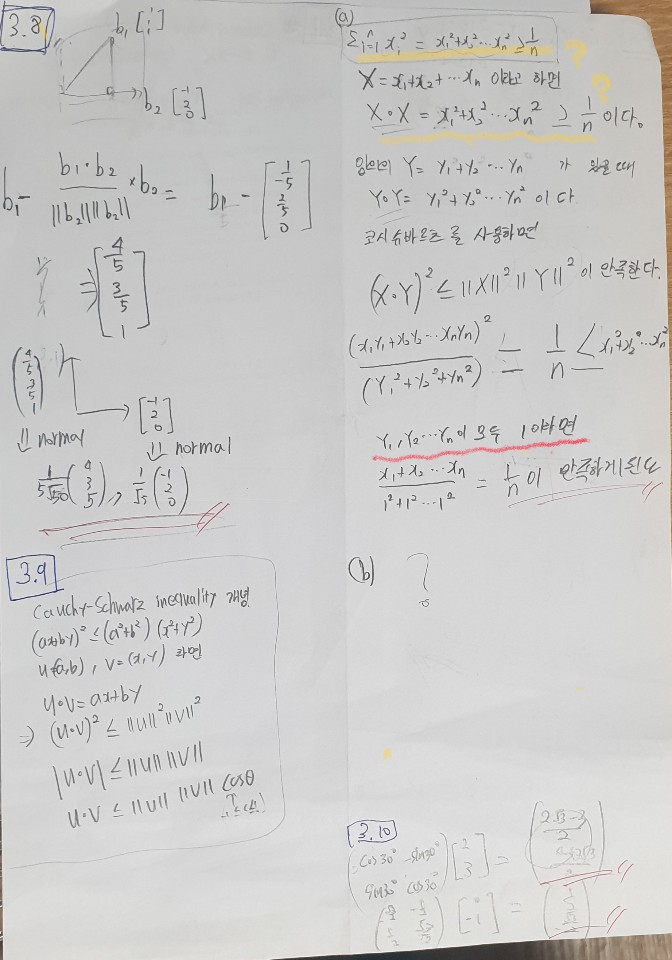 3.8
b₁ [1 1 1]
b₂ [-1 2 0]
b₁ - b₁·b₂ / ||b₂|| ||b₂|| × b₂ = b₁ - [1/-5 2/5 0]
⇒ [4/5 3/5 1]
(4/5 3/5 1) → [-1 2 0]
⇓ normal ⇓ normal
1/5√50 (4 3 5), 1/√5 (-1 2 0)
3.9
Cauchy-Schwarz inequality 개념
(ax+by)² ≤ (a²+b²)(x²+y²)
u=(a,b), v=(x,y) 라면
u·v = ax+by
⇒ (u·v)² ≤ ||u||² ||v||²
|u·v| ≤ ||u|| ||v||
u·v ≤ ||u|| ||v|| cosθ
(a)
Σⁿᵢ₌₁ xᵢ² = x₁²+x₂² ⋯ xₙ² ≥ 1/n ?
X = x₁+x₂+ ⋯ xₙ 이라고 하면 ?
X∘X = x₁²+x₂² ⋯ xₙ² ≥ 1/n 이다.
임의의 Y = Y₁+Y₂ ⋯ Yₙ 가 있을 때
Y∘Y = Y₁²+Y₂² ⋯ Yₙ² 이다
코시슈바르츠를 사용하면
(X∘Y)² ≤ ||X||² ||Y||² 이 만족한다.
(x₁Y₁+x₂Y₂ ⋯ xₙYₙ)² / (Y₁²+Y₂²+Yₙ²) = 1/n ≤ x₁²+x₂² ⋯ xₙ²
Y₁, Y₂ ⋯ Yₙ이 모두 1이라면
x₁+x₂ ⋯ xₙ / 1²+1² ⋯ 1² = 1/n 이 만족하게된다
(b) ?
3.10
(cos30° -sin30° sin30° cos30°) [2 3] = (2√3-3/2
[0 -1] =